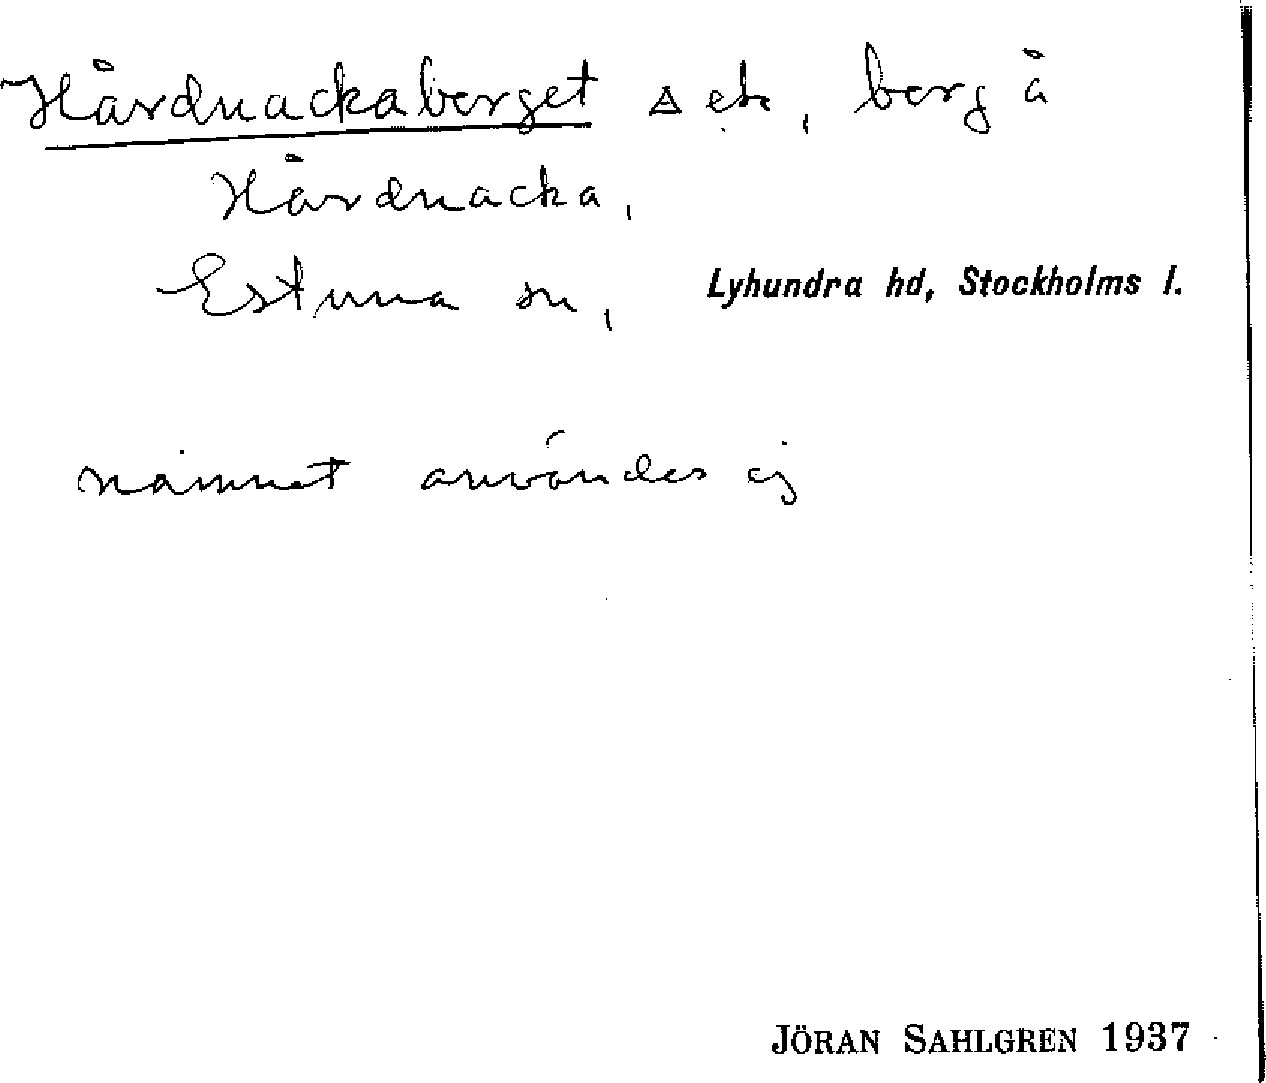 Hårdnackaberget △ ek, berg å
Hårdnacka,
Estuna sn, Lyhundra hd, Stockholms l.
namnet användes ej
JÖRAN SAHLGREN 1937